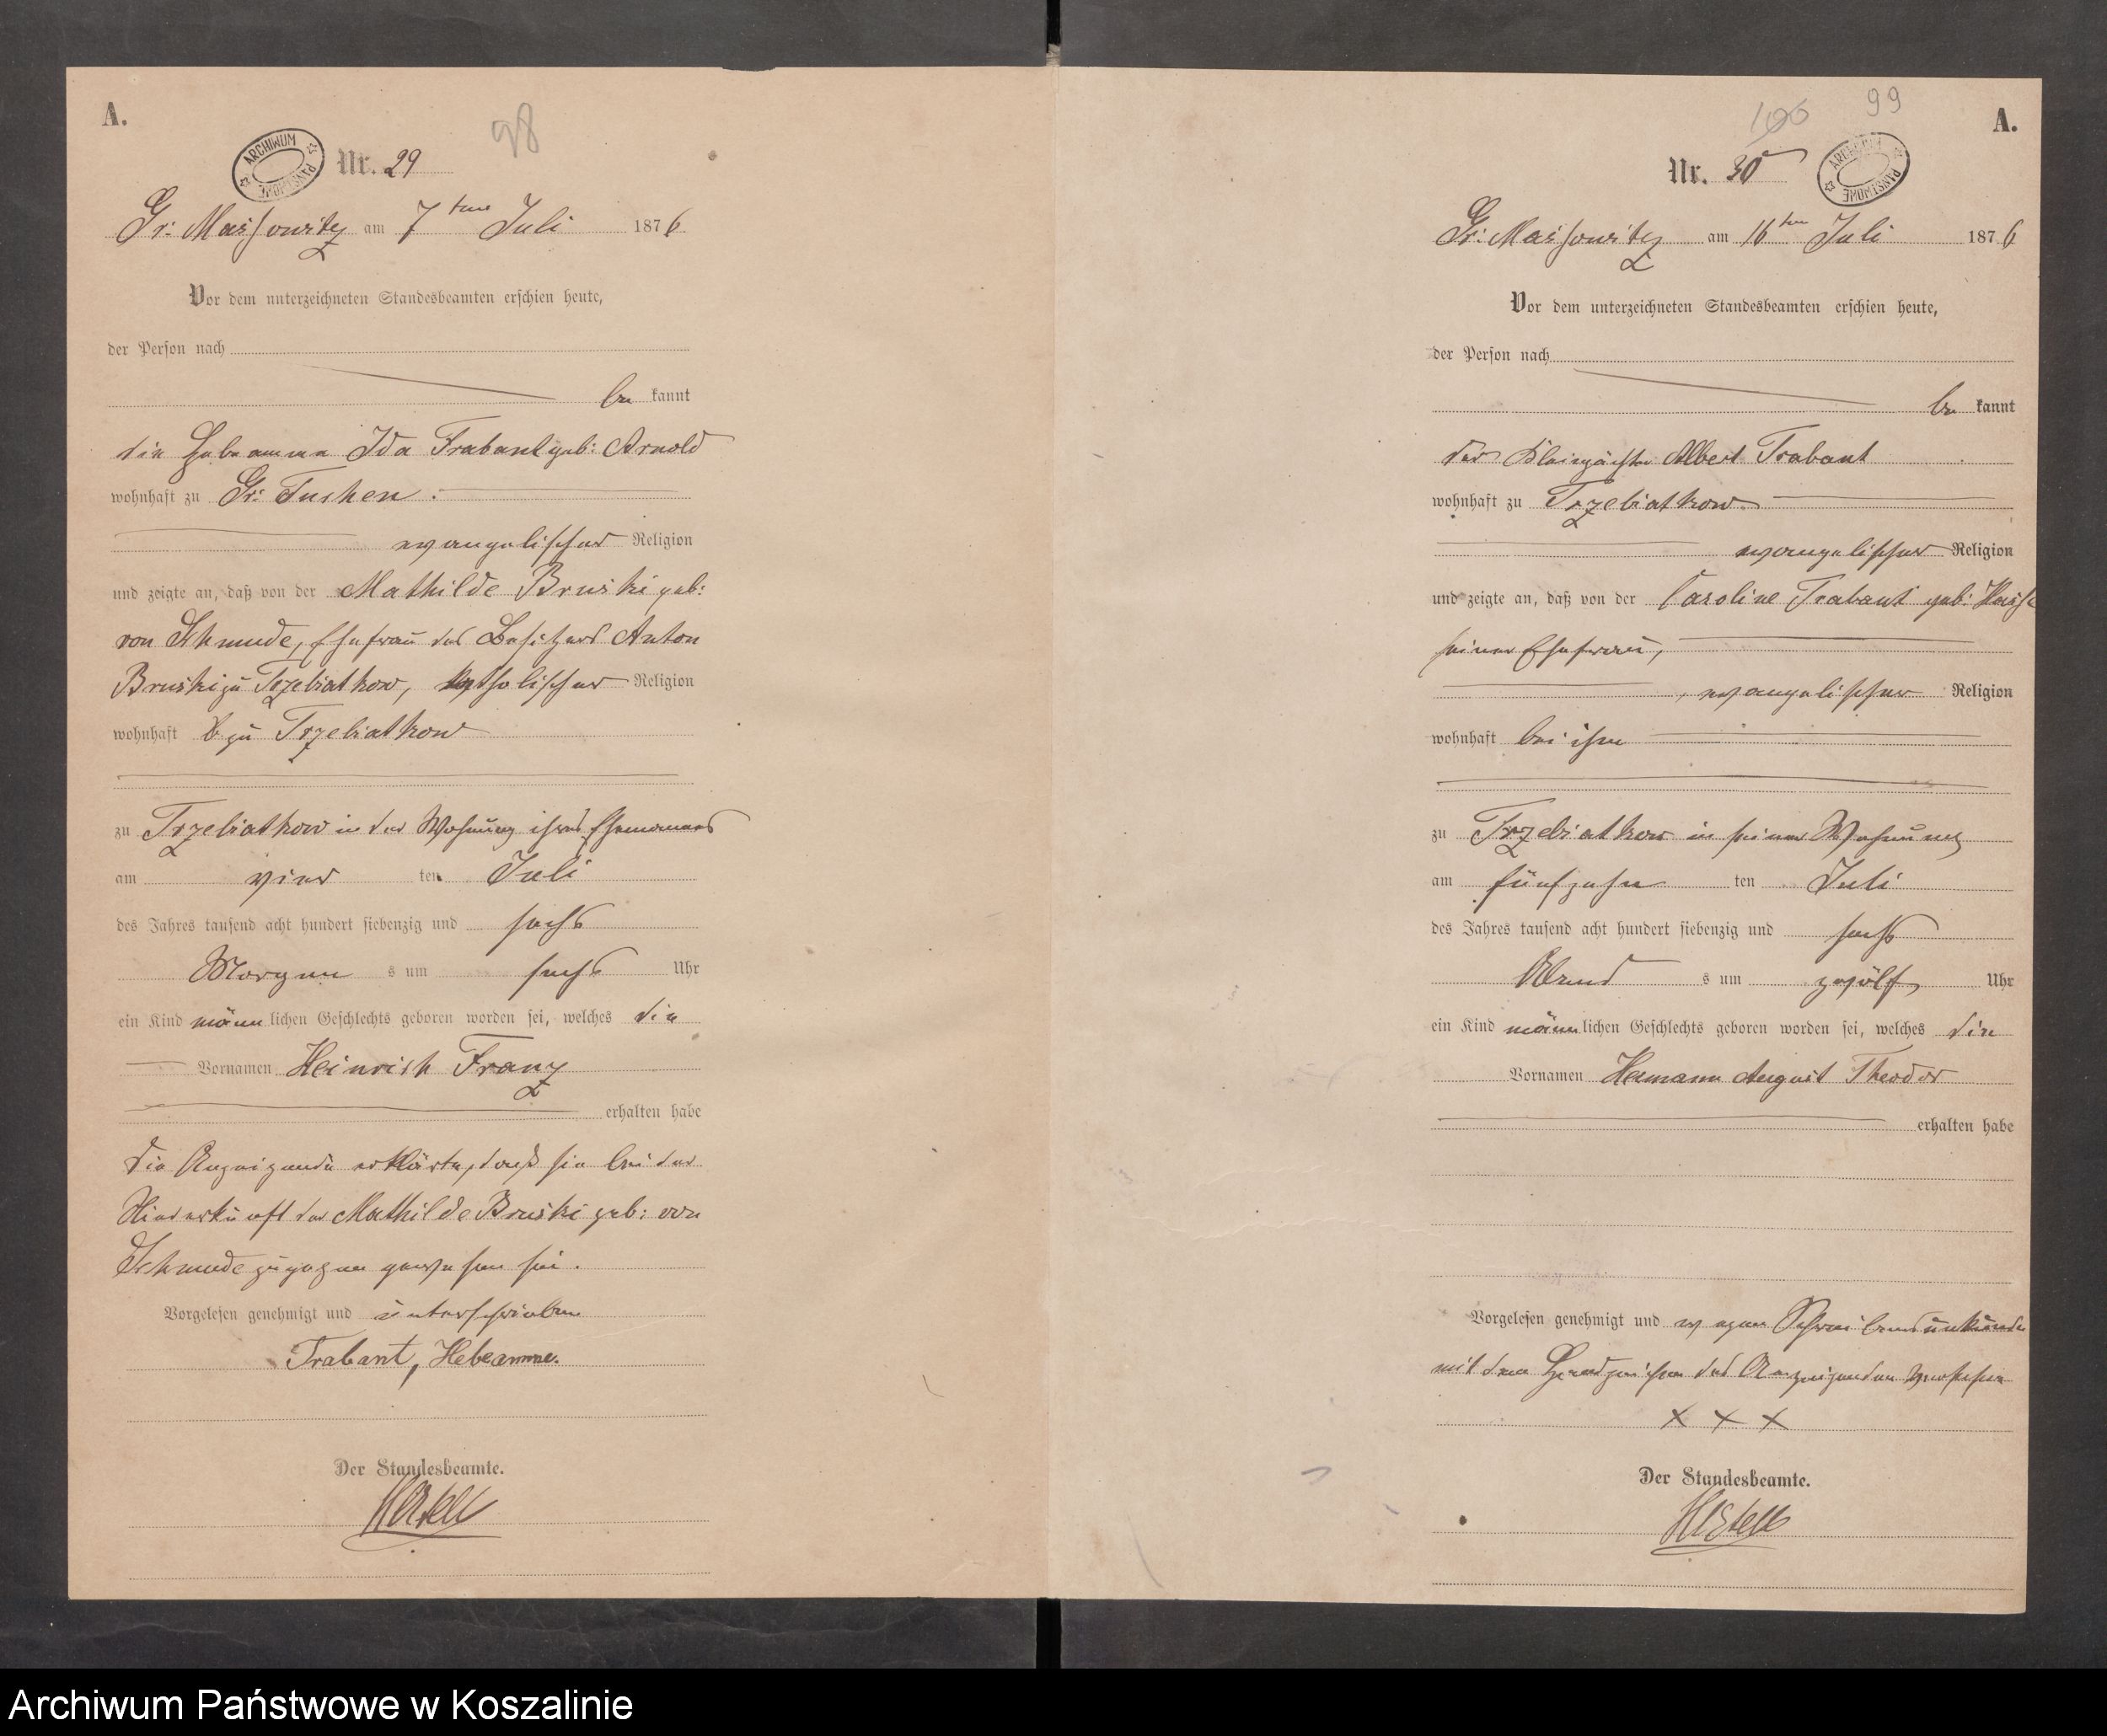 A.
98
ARCHIWUM PAŃSTWOWE
Nr. 29
Gr: Massowitz am 7ten Juli 1876
Vor dem unterzeichneten Standesbeamten erschien heute,
der Person nach
be kannt
die Hebeamme Ida Trabant geb: Arnold
wohnhaft zu Gr: Tuchen.
evangelischer Religion
und zeigte an, daß von der Mathilde Bruski geb:
von Schmude, Ehefrau des Besitzers Anton
Bruski zu Trzebiatkow, katholischer Religion
wohnhaft zu Trzebiatkow
zu Trzebiatkow in der Wohnung ihres Ehemannes
am vier ten Juli
des Jahres tausend acht hundert siebenzig und sechs
Morgen s um sechs Uhr
ein Kind männlichen Geschlechts geboren worden sei, welches die
Vornamen Heinrich Franz
erhalten habe
Die Anzeigende erklärte, daß sie bei der
Niederkunft der Mathilde Bruski geb: von
Schmude zugegen gewesen sei.
Vorgelesen genehmigt und unterschrieben
Trabant, Hebeamme.
Der Standesbeamte.
A.
99
100
Nr. 30
ARCHIWUM PAŃSTWOWE
Gr: Massowitz am 16ten Juli 1876
Vor dem unterzeichneten Standesbeamten erschien heute,
der Person nach
be kannt
der Albert Trabant
wohnhaft zu Trzebiatkow
evangelischer Religion
und zeigte an, daß von der Caroline Trabant geb: Hasse
seiner Ehefrau,
, evangelischer Religion
wohnhaft bei ihm
zu Trzebiatkow in seiner Wohnung
am fünfzehn ten Juli
des Jahres tausend acht hundert siebenzig und sechs
Abend s um zwölf Uhr
ein Kind männlichen Geschlechts geboren worden sei, welches die
Vornamen Hermann August Theodor
erhalten habe
Vorgelesen genehmigt und wegen Schreibensunkunde
mit dem Handzeichen des Anzeigenden versehen
X X X
Der Standesbeamte.
Archiwum Państwowe w Koszalinie